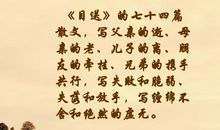 《目送》的七十四篇
散文，写父亲的逝、母
亲的老、儿子的离、朋
友的牵挂、兄弟的携手
共行，写失败和脆弱、
失落和放手，写缠绵不
舍和绝然的虚无。